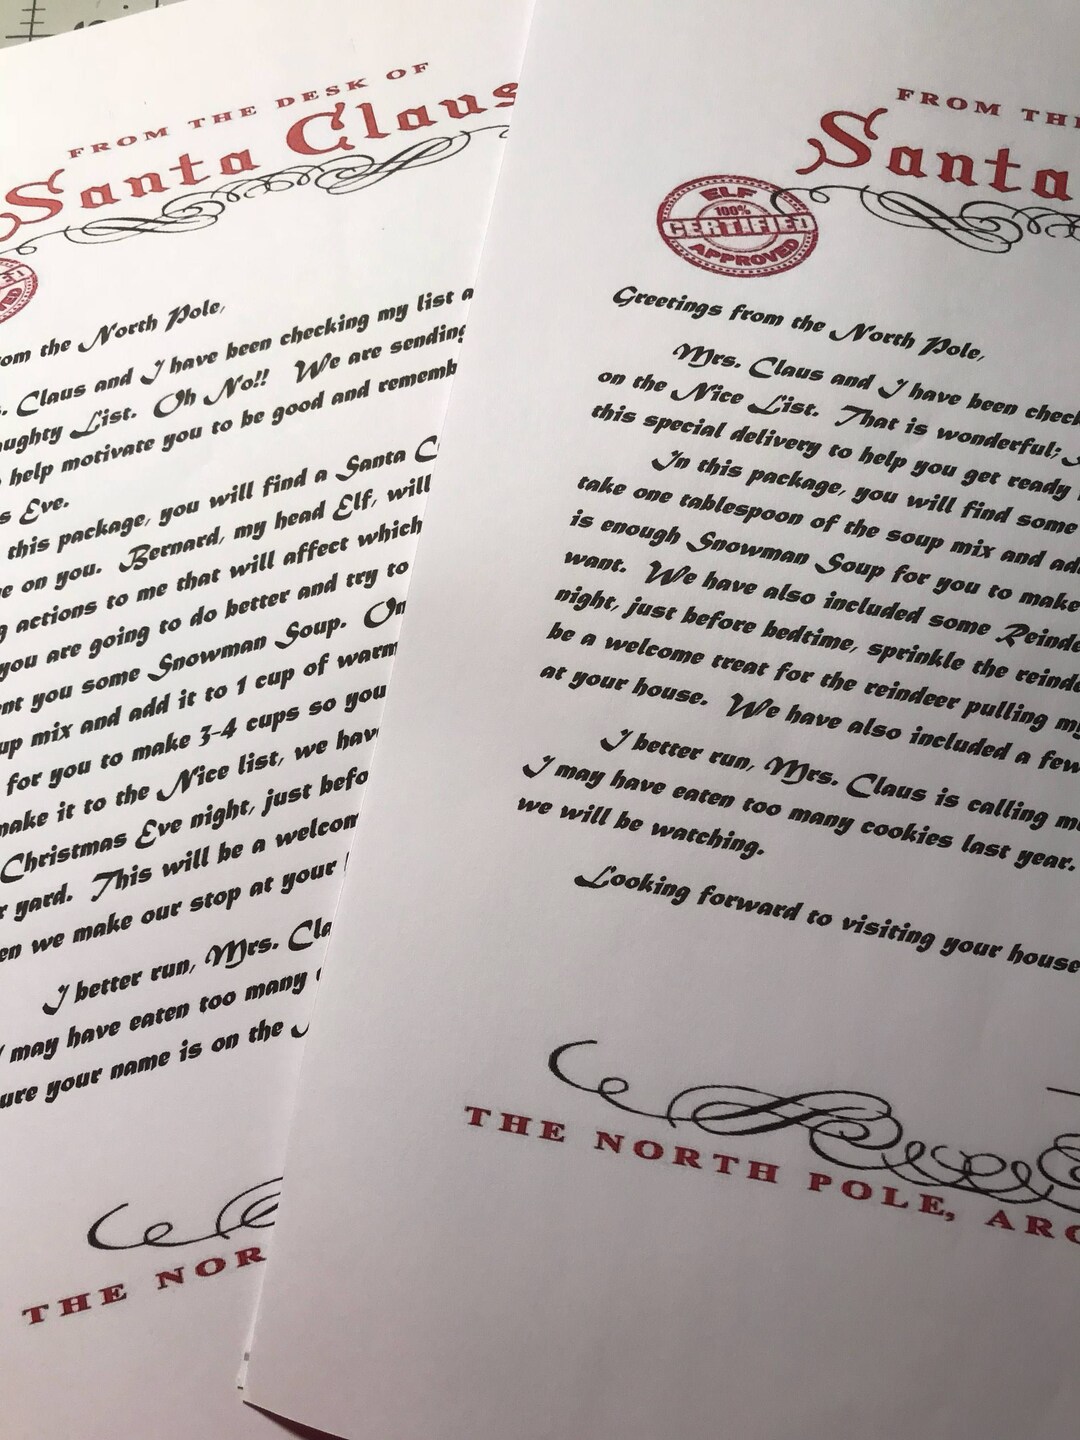 FROM THE DESK OF
Santa Claus
om the North Pole,
. Claus and I have been checking my list a
aughty List. Oh No!! We are sending
help motivate you to be good and rememb
s Eve.
this package, you will find a Santa C
e on you. Bernard, my head Elf, will
g actions to me that will affect which
you are going to do better and try to
nt you some Snowman Soup. On
up mix and add it to 1 cup of warm
for you to make 3-4 cups so you
make it to the Nice list, we hav
Christmas Eve night, just befo
r yard. This will be a welcom
en we make our stop at your
I better run, Mrs. Cla
I may have eaten too many
ure your name is on the
THE NOR
FROM THE
Santa
ELF
100%
CERTIFIED
APPROVED
Greetings from the North Pole,
Mrs. Claus and I have been check
on the Nice List. That is wonderful;
this special delivery to help you get ready
In this package, you will find some
take one tablespoon of the soup mix and ad
is enough Snowman Soup for you to make
want. We have also included some Reinde
night, just before bedtime, sprinkle the reinde
be a welcome treat for the reindeer pulling my
at your house. We have also included a few
I better run, Mrs. Claus is calling m
I may have eaten too many cookies last year.
we will be watching.
Looking forward to visiting your house
THE NORTH POLE, ARC